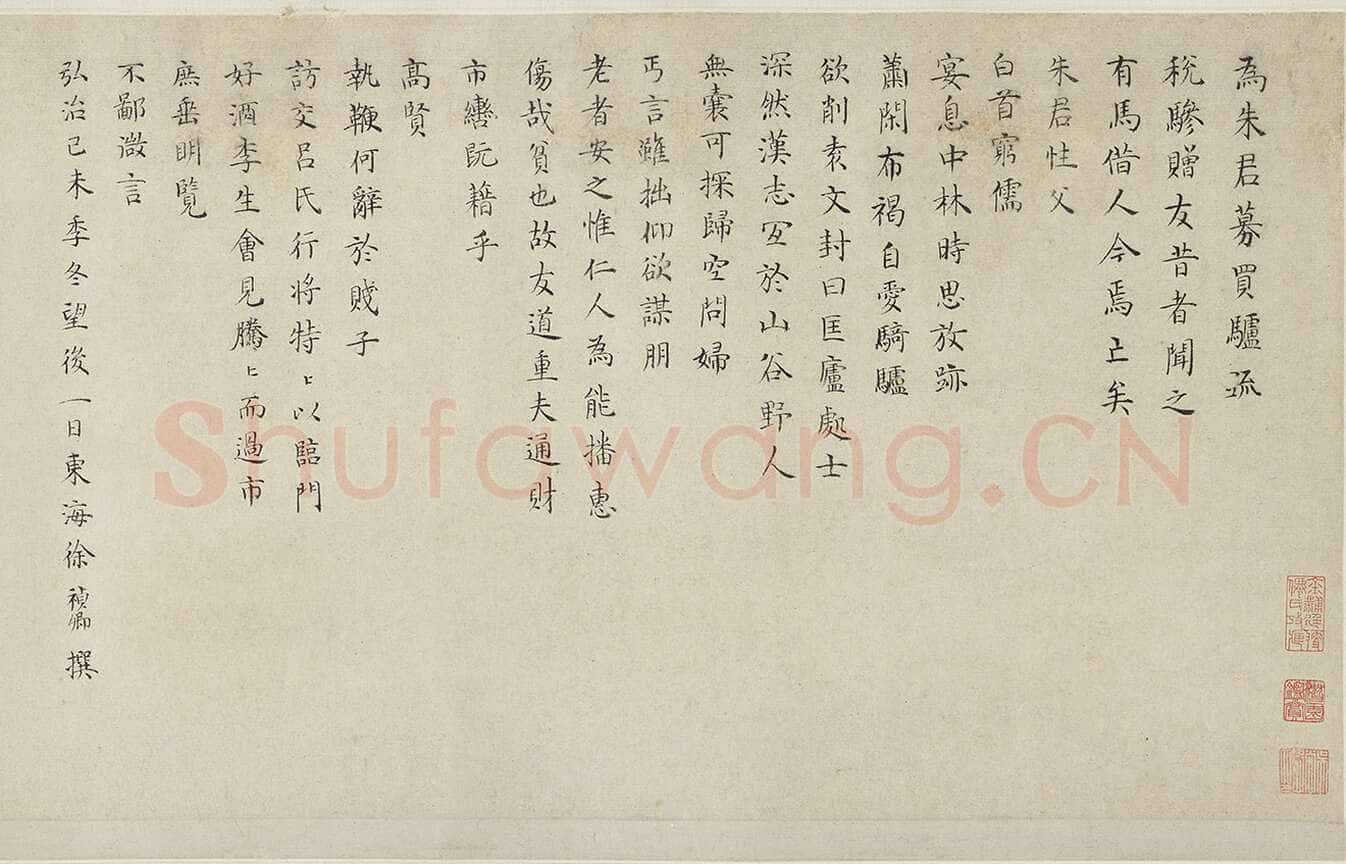 為朱君募買驢疏
稅驂贈友昔者聞之
有馬借人今焉亡矣
朱君性父
白首窮儒
宴息中林時思放跡
蕭閑布褐自愛騎驢
欲削表文封曰匡廬處士
深然漢志宜於山谷野人
無囊可探歸空問婦
丐言雖拙仰欲謀朋
老者安之惟仁人為能播惠
傷哉貧也故友道重夫通財
市轡阮籍乎
高賢
執鞭何辭於賤子
訪交呂氏行將特〻以臨門
好酒李生會見騰〻而過市
庶垂明覽
不鄙微言
弘治己未季冬望後一日東海徐禎卿撰
Shufawang.CN